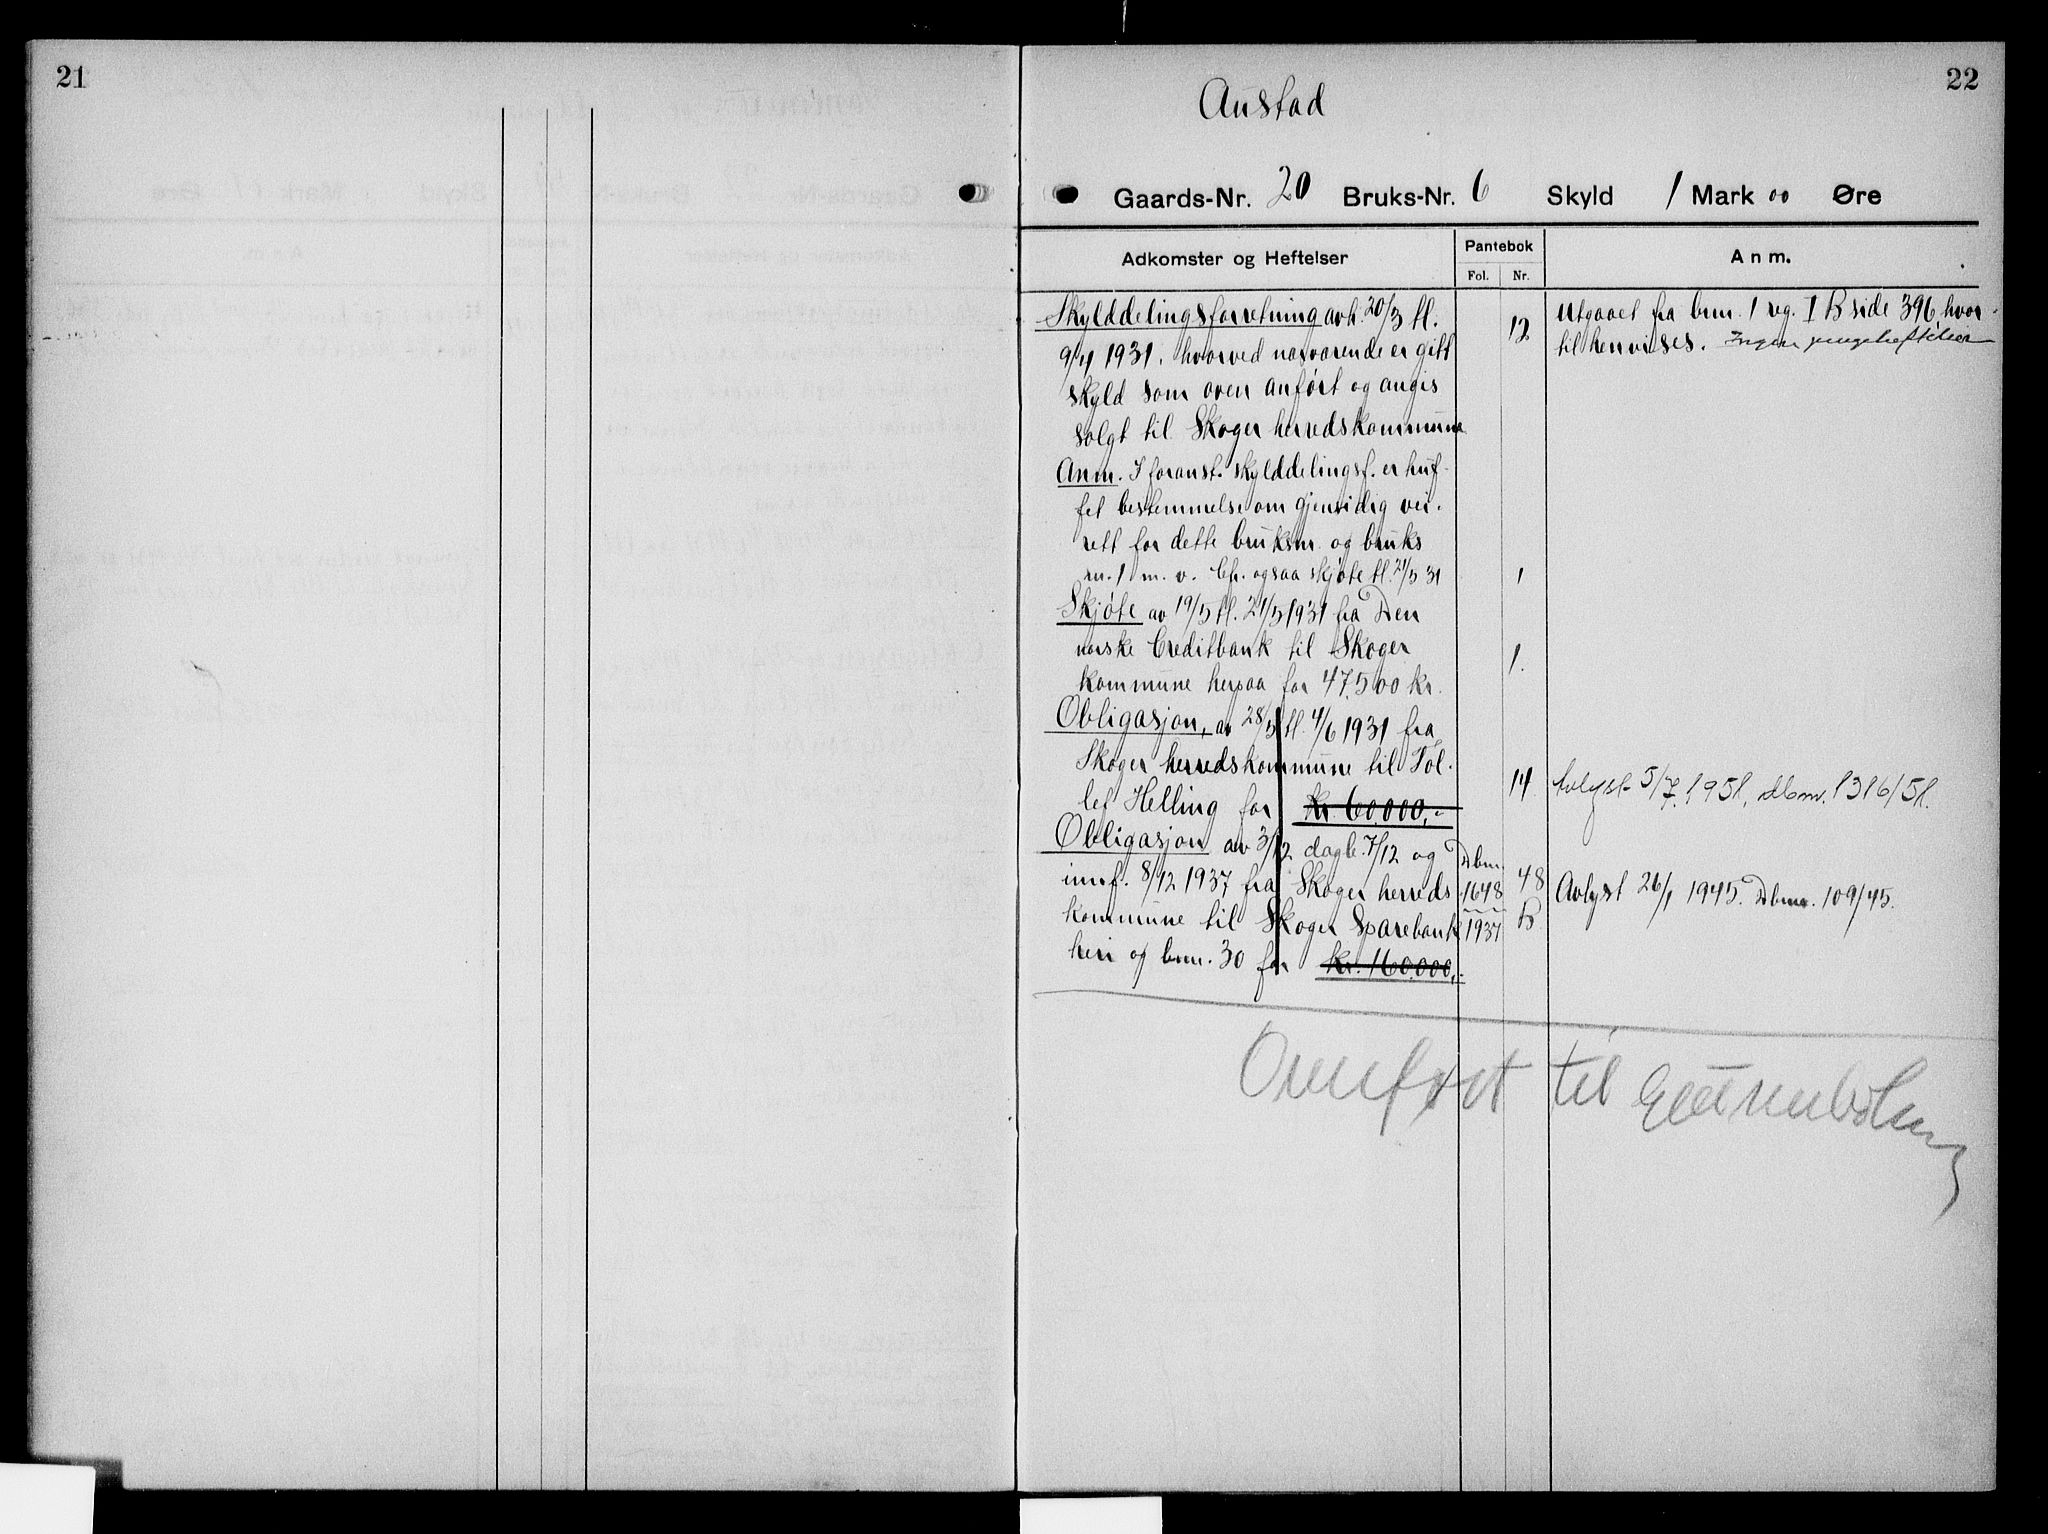 21
22
Austad
Gaards-Nr. 20 Bruks-Nr. 6 Skyld 1 Mark 00 Øre
Adkomster og Heftelser
Pantebok
Fol. Nr.
Anm.
Skylddelingsforretning avh. 20/3 tl.
9/4 1931, hvorved nærværende er gitt
skyld som oven anført og angis
solgt til Skoger herredskommune
12
Utgaaet fra brnr. 1 reg. I B side 396 hvor-
til henvises. Ingen pengeheftelser
Anm. I foranst. skylddelingsf. er hef-
tet bestemmelse om gjensidig vei-
rett for dette bruksnr. og bruks
nr. 1 m. v. Cfr. ogsaa skjøte tl. 21/5 31
1
Skjøte av 19/5 tl. 21/5 1931 fra Den
norske Creditbank til Skoger
kommune herpaa for 47.500 kr.
1.
Obligasjon, av 28/5 tl. 4/6 1931 fra
Skoger herredskommune til Tol-
lef Helling for Kr 60.000,-
14
Avlyst 5/7 1951, dbnr. 1316/51.
Obligasjon av 3/12 dagb. 7/12 og
innf. 8/12 1937 fra Skoger herreds
kommune til Skoger Sparebank
heri og brnr. 30 for kr. 160.000,-
Dbnr.
1648
1937
48
B
Avlyst 26/1 1945. Dbnr. 109/45.
Overført til